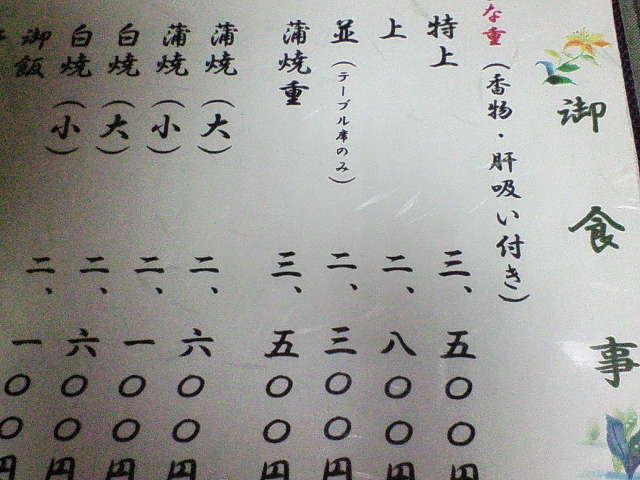 御食事
な重（香物・肝吸い付き）
特上 三、五〇〇円
上 二、八〇〇円
並（テーブル席のみ） 二、三〇〇円
蒲焼重 三、五〇〇円
蒲焼（大） 二、六〇〇円
蒲焼（小） 二、一〇〇円
白焼（大） 二、六〇〇円
白焼（小） 二、一〇〇円
御飯